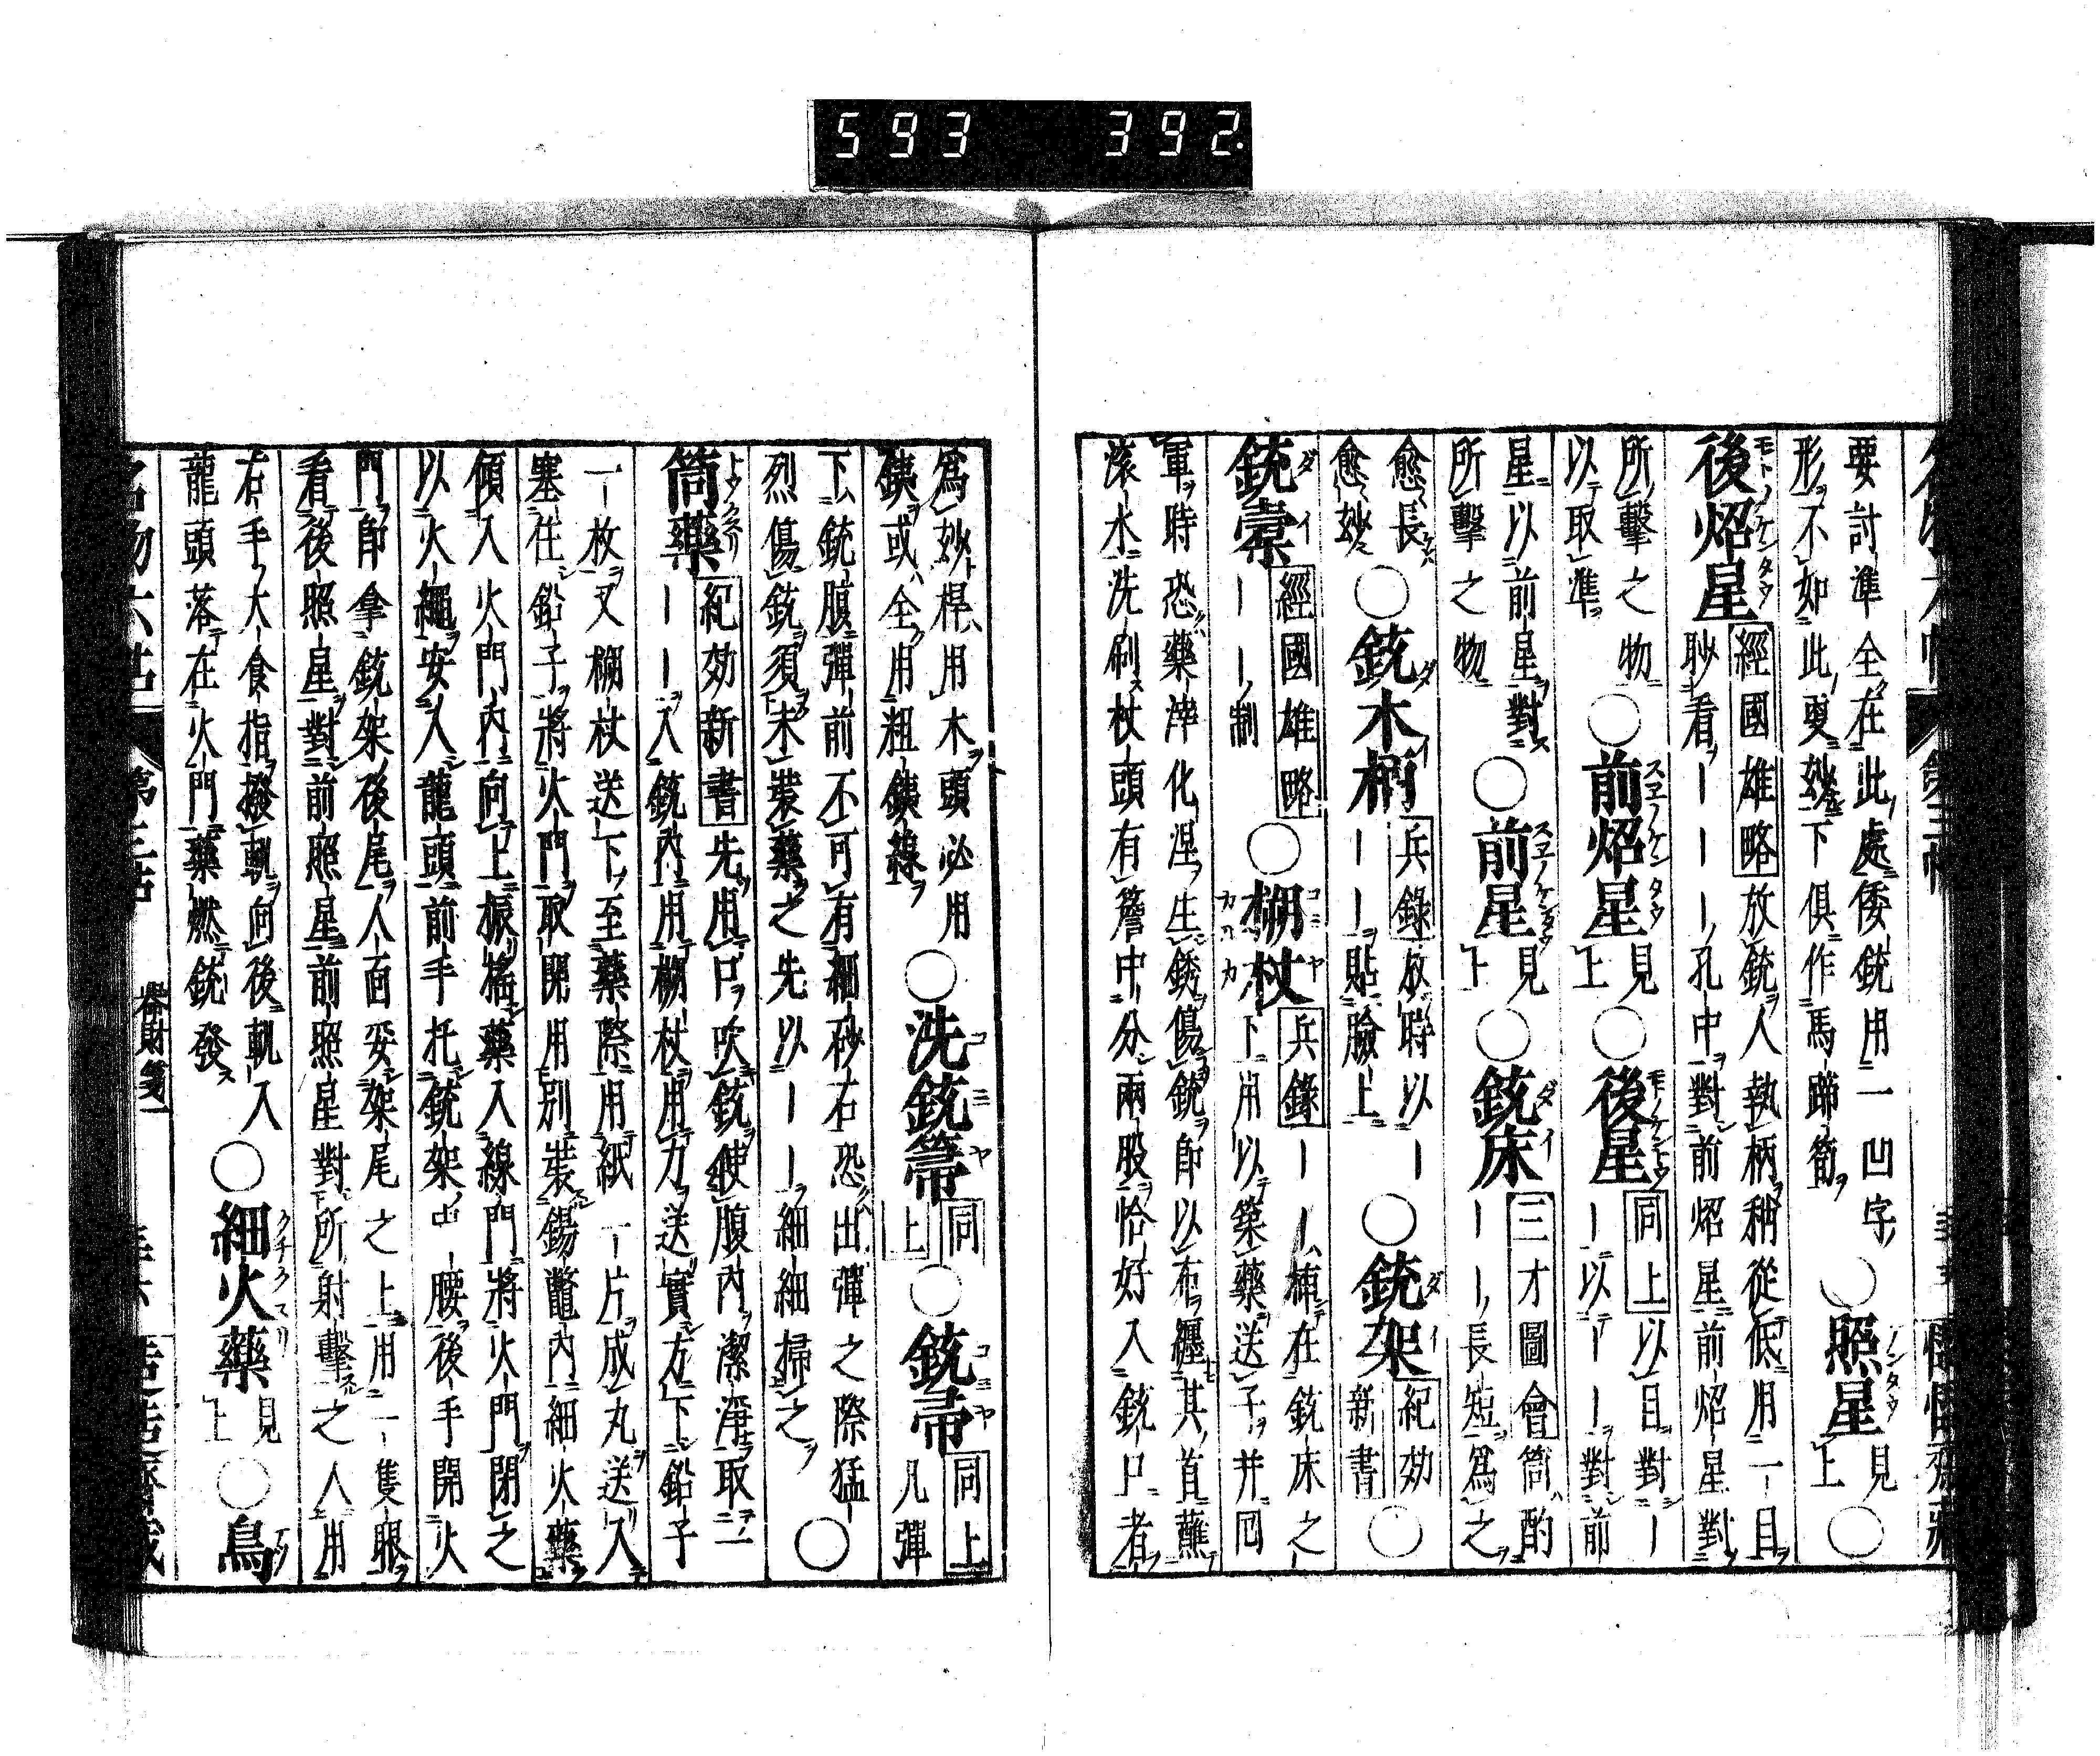 593 392.
要討準全在此處倭銃用一凹字
形不如此更玅下俱作馬蹄筍○照星見上○
後炤星經國雄略放銃人執柄稍從低用一目
眇看ーーー孔中對前炤星前炤星對
所擊之物○前炤星見上○後星同上以目對ー
以取準ー以ーー對前
星以前星對○前星見上○銃床三才圖會筒酌
所擊之物ーー長短爲之
愈長愈玅○銃木柄兵錄放時以ーーー貼臉上○銃架紀効新書○
銃橐經國雄略ーー制○搠杖兵錄ーー插在銃床之下用以築藥送子幷回
軍時恐藥滓化涅生銹傷銃卽以布纏其首蘸
滾水洗刷杖頭有簷中分兩股恰好入銃口者
爲玅桿用木頭必用○洗銃箒同上○銃帚同上凡彈
鐵或全用粗鐵線
下銃腹彈前不可有細砂石恐出彈之際猛
烈傷銃須未裝藥之先以ーー細細掃之○
筒藥紀効新書先用口吹銃使腹內潔淨取一
ーーー入銃內用搠杖用力送實方下鉛子
一枚又搠杖送下至藥際用紙一片成丸送入
塞住鉛子將火門取開用別裝錫鼈內細火藥
傾入火門內向上振搖藥入線門將火門閉之
以火繩安入龍頭前手托銃架中腰後手開火
門卽拿銃架後尾人面妥架尾之上用一隻眼
看後照星對前照星前照星對所射擊之人用
右手大食指撥軌向後軌入
龍頭落在火門藥燃銃發○細火藥見上○鳥
名物六帖 第三帖 器財箋一